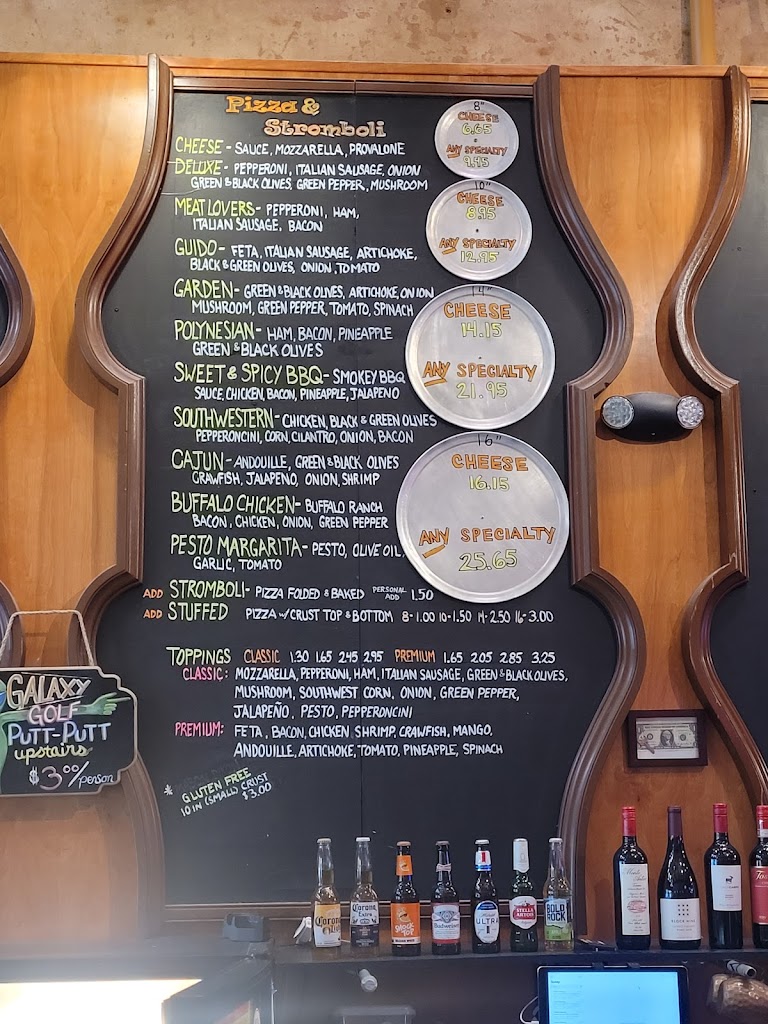 Pizza &
Stromboli
CHEESE - SAUCE, MOZZARELLA, PROVALONE
DELUXE - PEPPERONI, ITALIAN SAUSAGE, ONION
GREEN & BLACK OLIVES, GREEN PEPPER, MUSHROOM
MEAT LOVERS - PEPPERONI, HAM,
ITALIAN SAUSAGE, BACON
GUIDO - FETA, ITALIAN SAUSAGE, ARTICHOKE,
BLACK & GREEN OLIVES, ONION, TOMATO
GARDEN - GREEN & BLACK OLIVES, ARTICHOKE, ONION
MUSHROOM, GREEN PEPPER, TOMATO, SPINACH
POLYNESIAN - HAM, BACON, PINEAPPLE
GREEN & BLACK OLIVES
SWEET & SPICY BBQ - SMOKEY BBQ
SAUCE, CHICKEN, BACON, PINEAPPLE, JALAPENO
SOUTHWESTERN - CHICKEN, BLACK & GREEN OLIVES
PEPPERONCINI, CORN, CILANTRO, ONION, BACON
CAJUN - ANDOUILLE, GREEN & BLACK OLIVES
CRAWFISH, JALAPENO, ONION, SHRIMP
BUFFALO CHICKEN - BUFFALO RANCH
BACON, CHICKEN, ONION, GREEN PEPPER
PESTO MARGARITA - PESTO, OLIVE OIL,
GARLIC, TOMATO
ADD STROMBOLI - PIZZA FOLDED & BAKED PERSONAL ADD 1.50
ADD STUFFED PIZZA w/ CRUST TOP & BOTTOM 8 - 1.00 10 - 1.50 14 - 2.50 16 - 3.00
TOPPINGS CLASSIC 1.30 1.65 2.45 2.95 PREMIUM 1.65 2.05 2.85 3.25
CLASSIC: MOZZARELLA, PEPPERONI, HAM, ITALIAN SAUSAGE, GREEN & BLACK OLIVES,
MUSHROOM, SOUTHWEST CORN, ONION, GREEN PEPPER,
JALAPEÑO, PESTO, PEPPERONCINI
PREMIUM: FETA, BACON, CHICKEN, SHRIMP, CRAWFISH, MANGO,
ANDOUILLE, ARTICHOKE, TOMATO, PINEAPPLE, SPINACH
* GLUTEN FREE
10 IN (SMALL) CRUST
$3.00
8"
CHEESE
6.65
ANY SPECIALTY
9.45
10"
CHEESE
8.95
ANY SPECIALTY
12.95
14"
CHEESE
14.15
ANY SPECIALTY
21.95
16"
CHEESE
16.15
ANY SPECIALTY
25.65
GALAXY
GOLF
PUTT-PUTT
upstairs
$3.00/person
Corona
Light
Corona
Extra
SHOCK
TOP
Budweiser
ULTRA
STELLA
ARTOIS
BOLD
ROCK